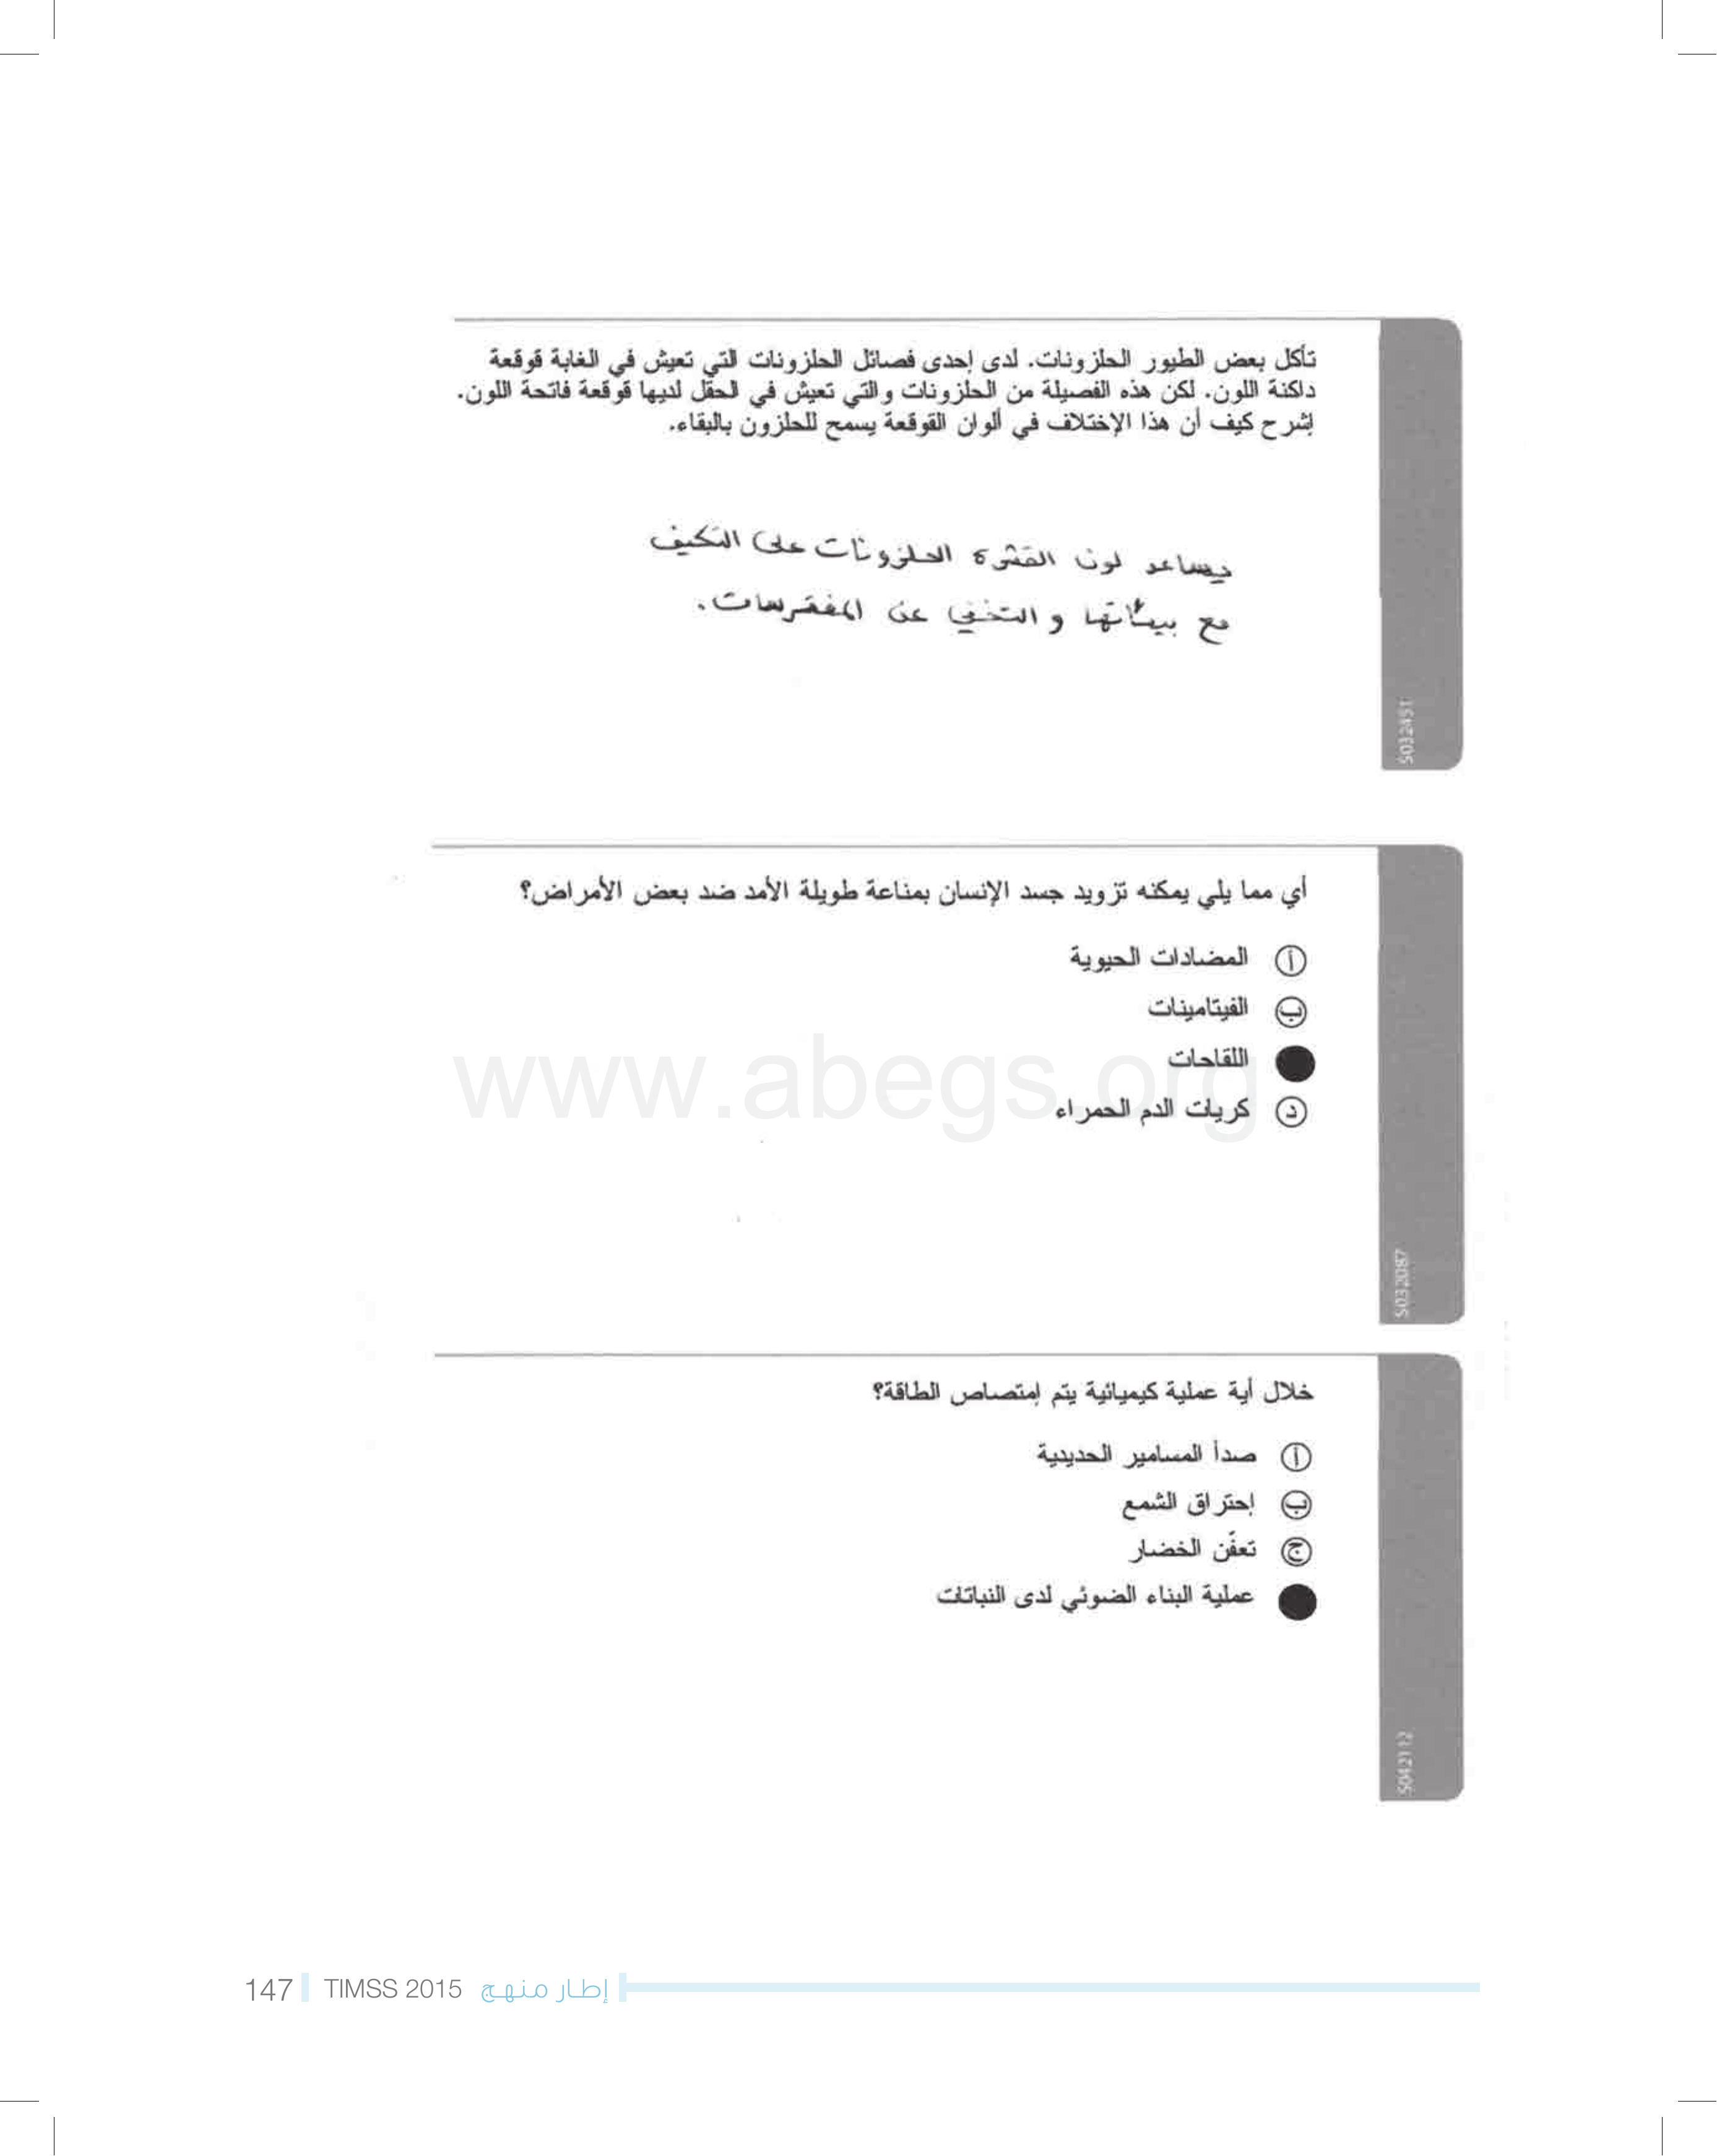 تأكل بعض الطيور الحلزونات. لدى إحدى فصائل الحلزونات التي تعيش في الغابة قوقعة
داكنة اللون. لكن هذه الفصيلة من الحلزونات والتي تعيش في الحقل لديها قوقعة فاتحة اللون.
إشرح كيف أن هذا الإختلاف في ألوان القوقعة يسمح للحلزون بالبقاء.
يساعد لون القشرة الحلزونات على التكيف
مع بيئاتها والتخفي عن المفترسات.
S032451
أي مما يلي يمكنه تزويد جسد الإنسان بمناعة طويلة الأمد ضد بعض الأمراض؟
أ المضادات الحيوية
ب الفيتامينات
اللقاحات
د كريات الدم الحمراء
www.abegs.org
S032087
خلال أية عملية كيميائية يتم إمتصاص الطاقة؟
أ صدأ المسامير الحديدية
ب إحتراق الشمع
ج تعفّن الخضار
عملية البناء الضوئي لدى النباتات
S042112
إطار منهج TIMSS 2015 147